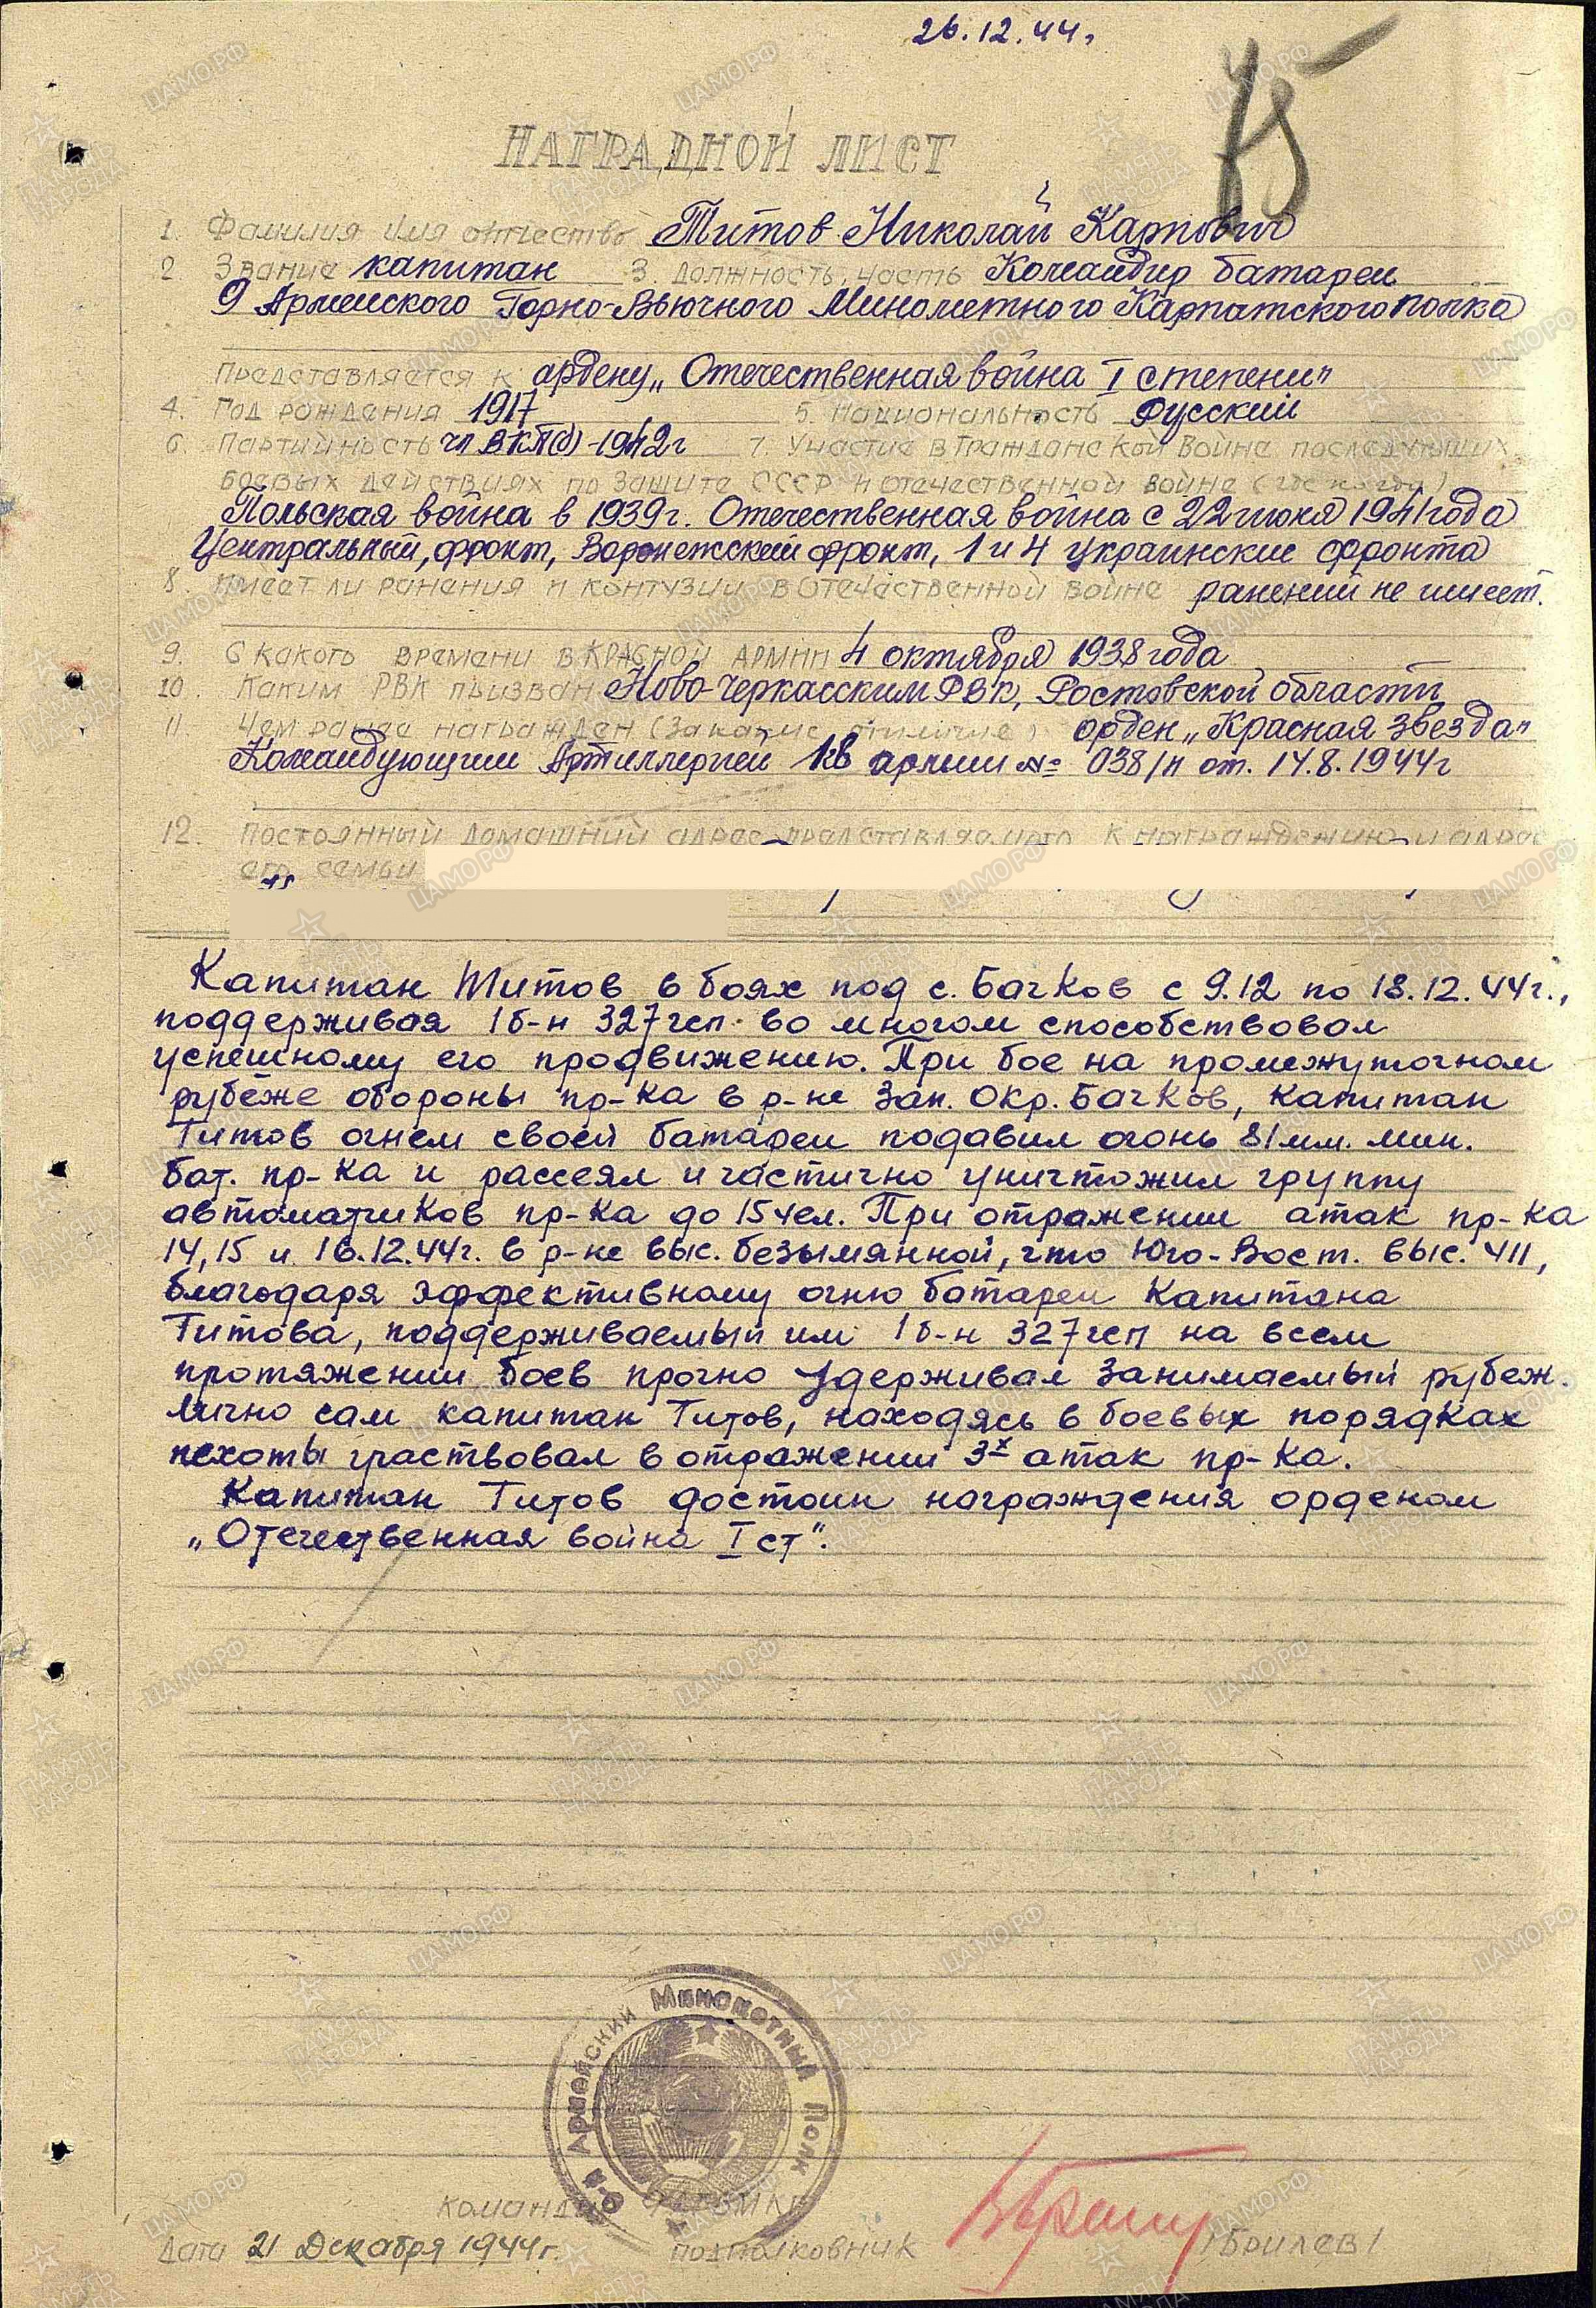 26.12.44г
75
НАГРАДНОЙ ЛИСТ
1. Фамилия имя отчество Титов Николай Карпович
2 Звание капитан 3. Должность, часть Командир батареи
9 Армейского Горно-Вьючного Минометного Карпатского полка
Представляется к ордену „Отечественная война I степени"
4. Год рождения 1917 5. Национальность Русский
6. Партийность чл ВКП(б) - 1942г 7. Участие в Гражданской войне последующих
боевых действиях по защите СССР и отечественной войне (где когда)
Польская война в 1939г. Отечественная война с 22 июня 1941 года
Центральный, фронт, Воронежский фронт, 1 и 4 Украинские фронта
8. Имеет ли ранения и контузии в Отечественной войне ранений не имеет.
9. С какого времени в КРАСНОЙ АРМИИ 4 октября 1938 года
10. Каким РВК призван Ново-Черкасским РВК, Ростовской области
11 Чем ранее награжден (за какие отличия) орден „Красная звезда"
Командующим Артиллерией 1гв армии № 038/н от. 14.8.1944г
12. Постоянный домашний адрес представляемого к награждению и адрес
его семьи
Капитан Титов в боях под с. Бачков с 9.12 по 18.12.44г.,
поддерживая 1 б-н 327 гсп во многом способствовал
успешному его продвижению. При бое на промежуточном
рубеже обороны пр-ка в р-не Зап. Окр. Бачков, капитан
Титов огнем своей батареи подавил огонь 81 мм. мин.
бат. пр-ка и рассеял и частично уничтожил группу
автоматчиков пр-ка до 15 чел. При отражении атак пр-ка
14, 15 и 16.12.44г. в р-не выс. безымянной, что Юго-Вост. выс. 411,
благодаря эффективному огню батареи Капитана
Титова, поддерживаемый им 1 б-н 327 гсп на всем
протяжении боев прочно удерживал занимаемый рубеж.
Лично сам капитан Титов, находясь в боевых порядках
пехоты участвовал в отражении 3х атак пр-ка.
Капитан Титов достоин награждения орденом
„Отечественная война I ст".
9-й Армейский Минометный Полк
Командир 9 АГВМКП
Дата 21 Декабря 1944г. подполковник /Брилев/